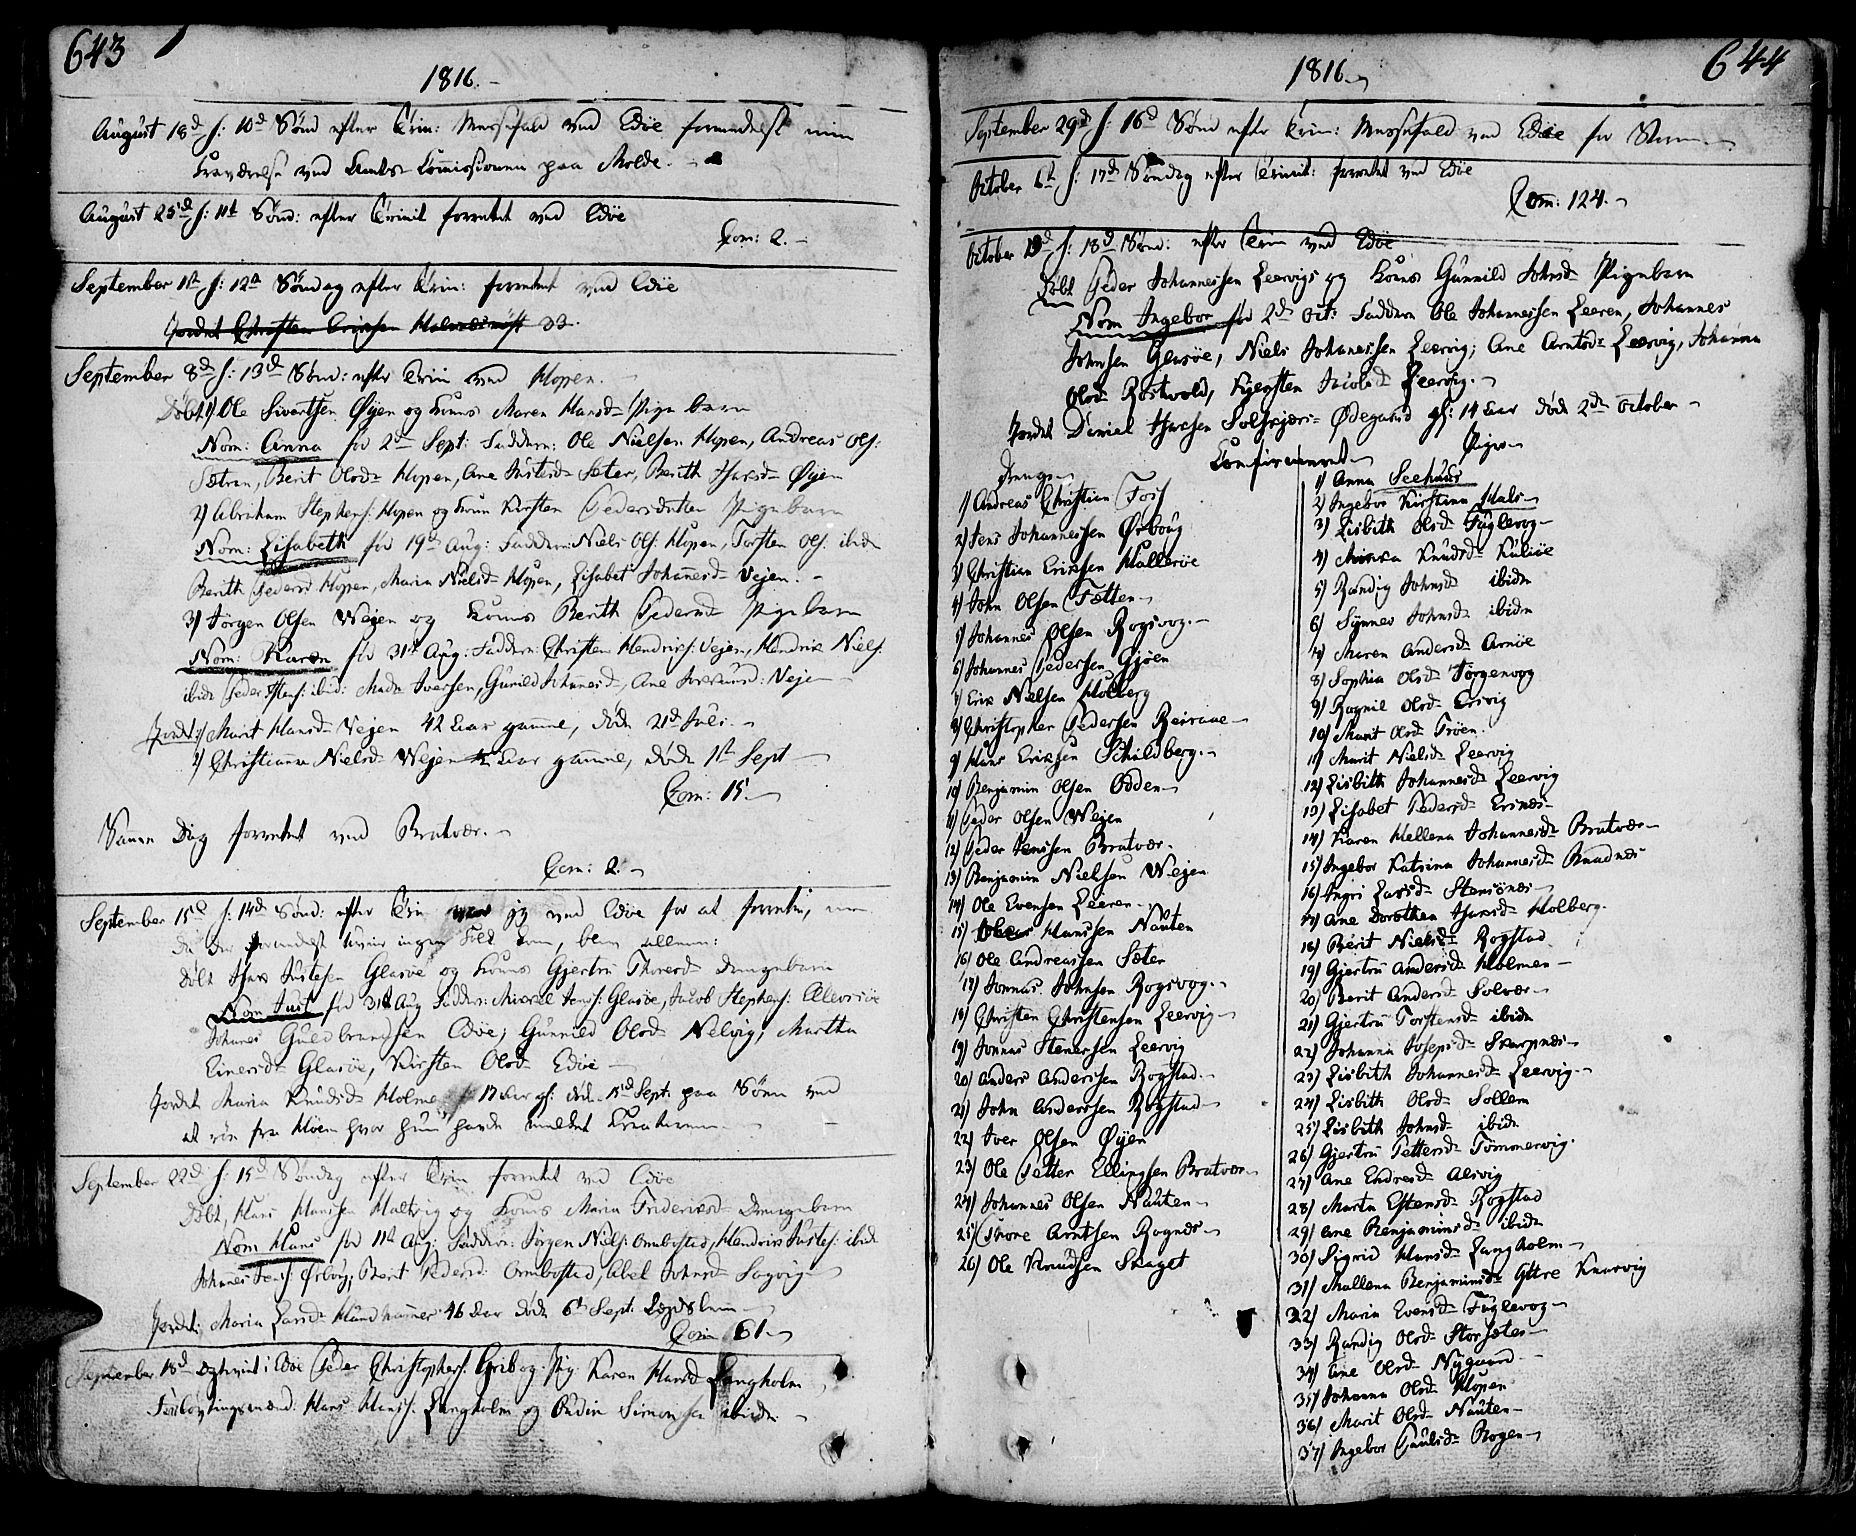 643
1816.
August 18d f: 10d Sønd efter Trin: Messefald ved Edöe formedelst min
Fraværelse ved Amts Commissionen paa Molde.
August 25d f: 11t Sönd: efter Trinit forrettet ved Edöe
Com: 2.
September 1st f: 12te Söndag efter Trin: forrettet ved Edöe
Jordet Christen Erichsen 33.
September 8d f: 13d Sönd: efter Trin ved Hopen.
Döbt 1) Ole Sivertsen Øyen og Kones Maren Hansd Pigebarn
Nom: Anna fød 2d Sept: Faddern: Ole Nielsen Hopen, Andreas Ols:
Sætran, Berit Olsd Hopen, Ane Justsd Seter, Berith Hansd Øyen
2) Abraham Stephens: Hopen og Kone Kirsten Pedersdatter Pigebarn
Nom: Lisabeth fød 19d Aug: Faddern: Niels Ols: Hopen, Torsten Ols: ibidn
Berith Pedersd Hopen, Maria Nielsd Hopen, Lisabet Johannesd Vejen.
3) Jörgen Olsen Wejen og Kones Berith Pedersd Pigebarn
Nom: Karen fød 31t Aug: Faddern: Christen Hendriks: Vejen, Hendrik Niels:
ibidn Peder ibid: Iversen, Gunild Johannesd, Ane Vejen
Jordet 1) Marit Hansd Vejen 42 Aar gamme, döde 21d Juli.
2) Christianna Nielsd Wejen Aar gamme, döde 1st Sept
Com: 15.
Samme Dag forrettet ved Bratvær.
Com: 2.
September 15d f: 14d Sönd: efter Trin var jeg ved Edöe for at forrette, men
da der formedelst ingen Folk kom, blev allene:
Döbt Justesen Glasöe og Kones Gjertru Thoresd Drengebarn
Nom Just fød 31t Aug Fadder: Mikael Jens: Glasöe, Jacob Stephens:
Johannes Guldbrandsen Edöe, Gunnild Olsd Nelvig, Martha
Einersd Glasöe, Kirsten Olsd Edöe
Jordet Maria Knudsd Holme 17 Aar gl: döde 15d Sept: paa Söen ved
at roe fra Höen hvor hun havde mælket Creaturene
September 22d f: 15d Söndag efter Trin forrettet ved Edöe
Döbt, Hans Hansen Haltvig og Kones Maria Fridericsd Drengebarn
Nom Hans fød 11t Aug: Faddern: Jörgen Niels: Ormbostad, Hendrik Justes: ibid
Johannes Jens: Ørboug, Berit Pedersd Ormbostad, Abel Johnsd Sagvig
Jordet: Maria Larsd Hundhammer 46 Aar döde 6t Sept: Lægdslem
Com 61
September 18d Copuleret i Edöe Peder Christophers: Grib og Pig: Karen Hansd Langholm
Forlovningsmænd: Hans Hans: Langholm og Ondin Simonsen ibidn
1816.
644
September 29d f: 16d Sönd efter Trin: Messefald ved Edöe for Storm
October 6t f: 17d Söndag efter Trinit: forrettet ved Edöe
Com: 124.
October f: 18d Sönd: efter Trin ved Edöe
Döbt Peder Johannessen Leervigs og Kones Gunnild Johnsd Pigebarn
Nom Ingebor fød 2d Oct: Faddern Ole Johannessen Leeren, Johannes
Johnsen Glasöe, Niels Johannessen Leervig; Ane Arntsd Leervig, Johanna
Olsd Rostvold, Kiersten Jacobsd Leervig.
Jordet Daniel Solskjærs Ødegaard gl: 14 Aar döde 2d October
Confirmeret
Drenge
1) Andreas Christian Fos
2) Jens Johannessen Ørboug
3) Christian Eriksen Hallerøe
4) John Olsen Tætten
5) Johannes Olsen Rogsvog.
6) Johannes Pedersen Gjöen
7) Erik Nielsen Holberg
8) Christopher Pedersen Reiraae
9) Hans Eriksen Schuldberg.
10) Benjamin Olsen Odden
11) Peder Olsen Wejen
12) Peder Jenssen Bratvær.
13) Benjamin Nielsen Wejen
14) Ole Evensen Leeren
15) Hanssen Nauten
16) Ole Andreassen Sæter
17) Jonnas Johnsen Rogsvog.
18) Christen Christensen Leervig
19) Jonnas Stenersen Leervig
20) Anders Anderssen Rogstad.
21) John Anderssen Rogstad
22) Iver Olsen Øyen
23) Ole Petter Ellingsen Bratvær
24) Johannes Olsen Nauten
25) Thore Arntsen Rognes
26) Ole Knudsen Skaget
Piger
1) Anna Seehuus
2) Ingebor Kirstina Hals
3) Lisbith Olsd Fuglevog
4) Knudsd Kuliöe
5) Randig Johnsd ibidn
6) Synnev Johnsd ibidn
7) Maren Andersd Arnöe
8) Sophia Olsd Jörgenvog
9) Ragnil Olsd Ersvig
10) Marit Olsd Tröen.
11) Marit Nielsd Leervig
12) Lisbith Johannesd Leervig
13) Lisabet Pedersd Ersnes
14) Karen Hellena Johannesd Bratvær
15) Ingebor Katrina Johannesd
16) Ingri Larsd Stensönes
17) Ane Dorothea Hansd Holberg.
18) Berit Nielsd Rogstad
19) Gjertru Andersd Holmen
20) Berit Andersd Solvær
21) Gjertru Torstensd ibidn
22) Johanna Josepsd Skarpnes
23) Lisbith Johannesd Leervig
24) Lisbith Olsd Sollem
25) Lisbith Johnsd ibidn
26) Gjertru Pettersd Tömmervig.
27) Ane Endresd Alsvig
28) Marta Estensd Rogstad
29) Ane Benjaminsd ibidn
30) Sigrid Hansd Langholm
31) Mallena Benjaminsd Yttre Knarvig
32) Maria Evensd Fuglevog
33) Randig Olsd Storsæter
34) Ane Olsd Nygaard
35) Johanna Olsd Hopen
36) Marit Olsd Nauten
37) Ingebor Paulsd Rogen